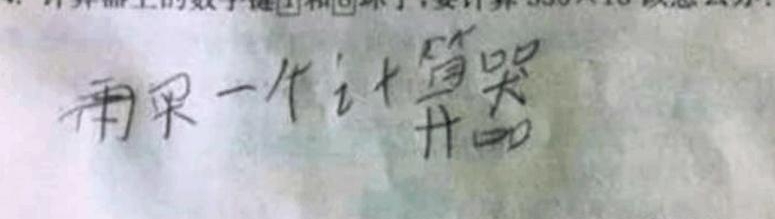 计算器上的数字键1和6坏了,要计算 ×16 该怎么办
再买一个计算器